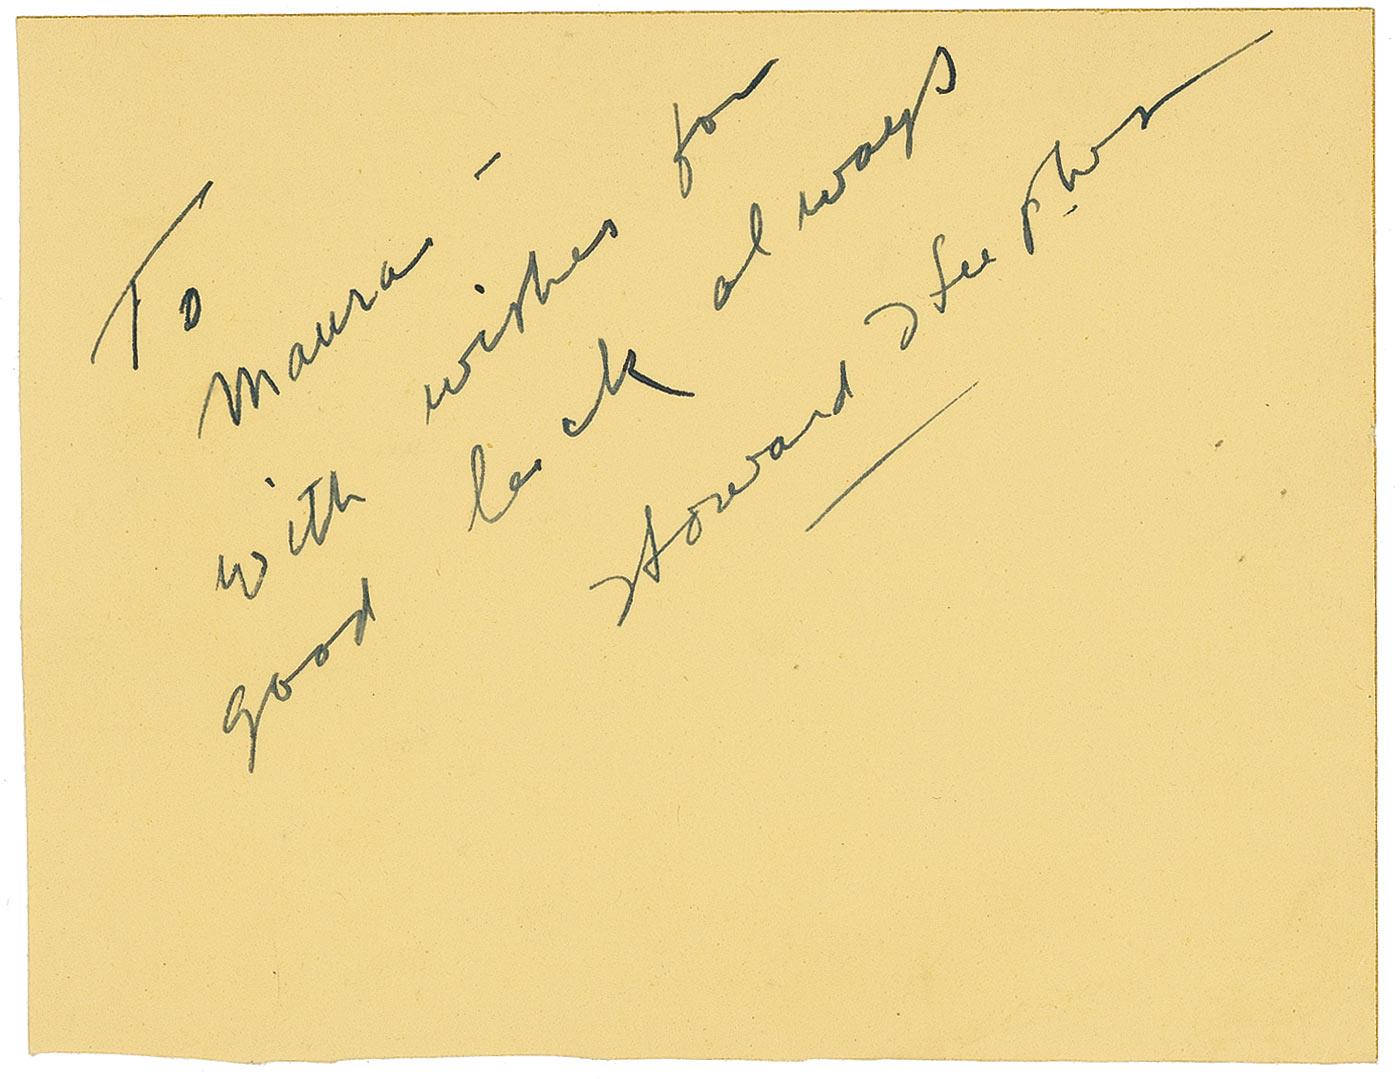 To
Maura -
with wishes for
good luck always
Howard Hughes